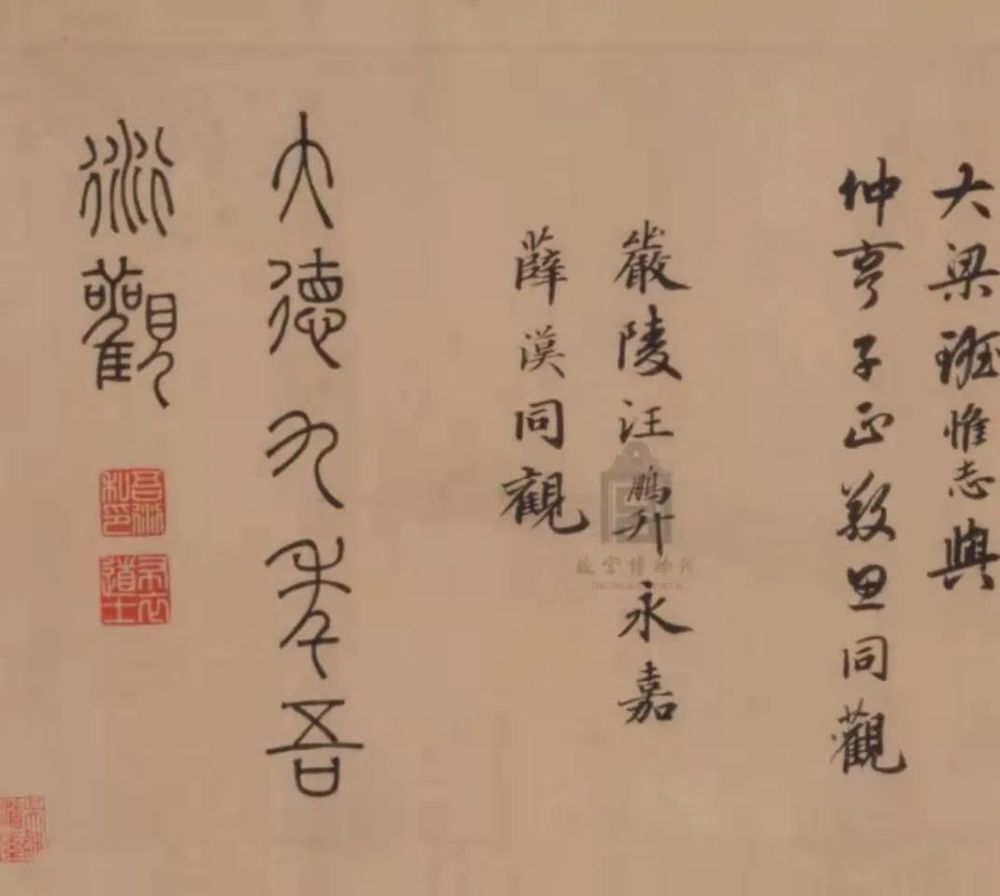 大梁班惟志與
仲亨子正同觀
嚴陵汪鵬升永嘉
薛漢同觀
大德九年吾
衍觀
吾衍私印
布衣道士
故宮博物院